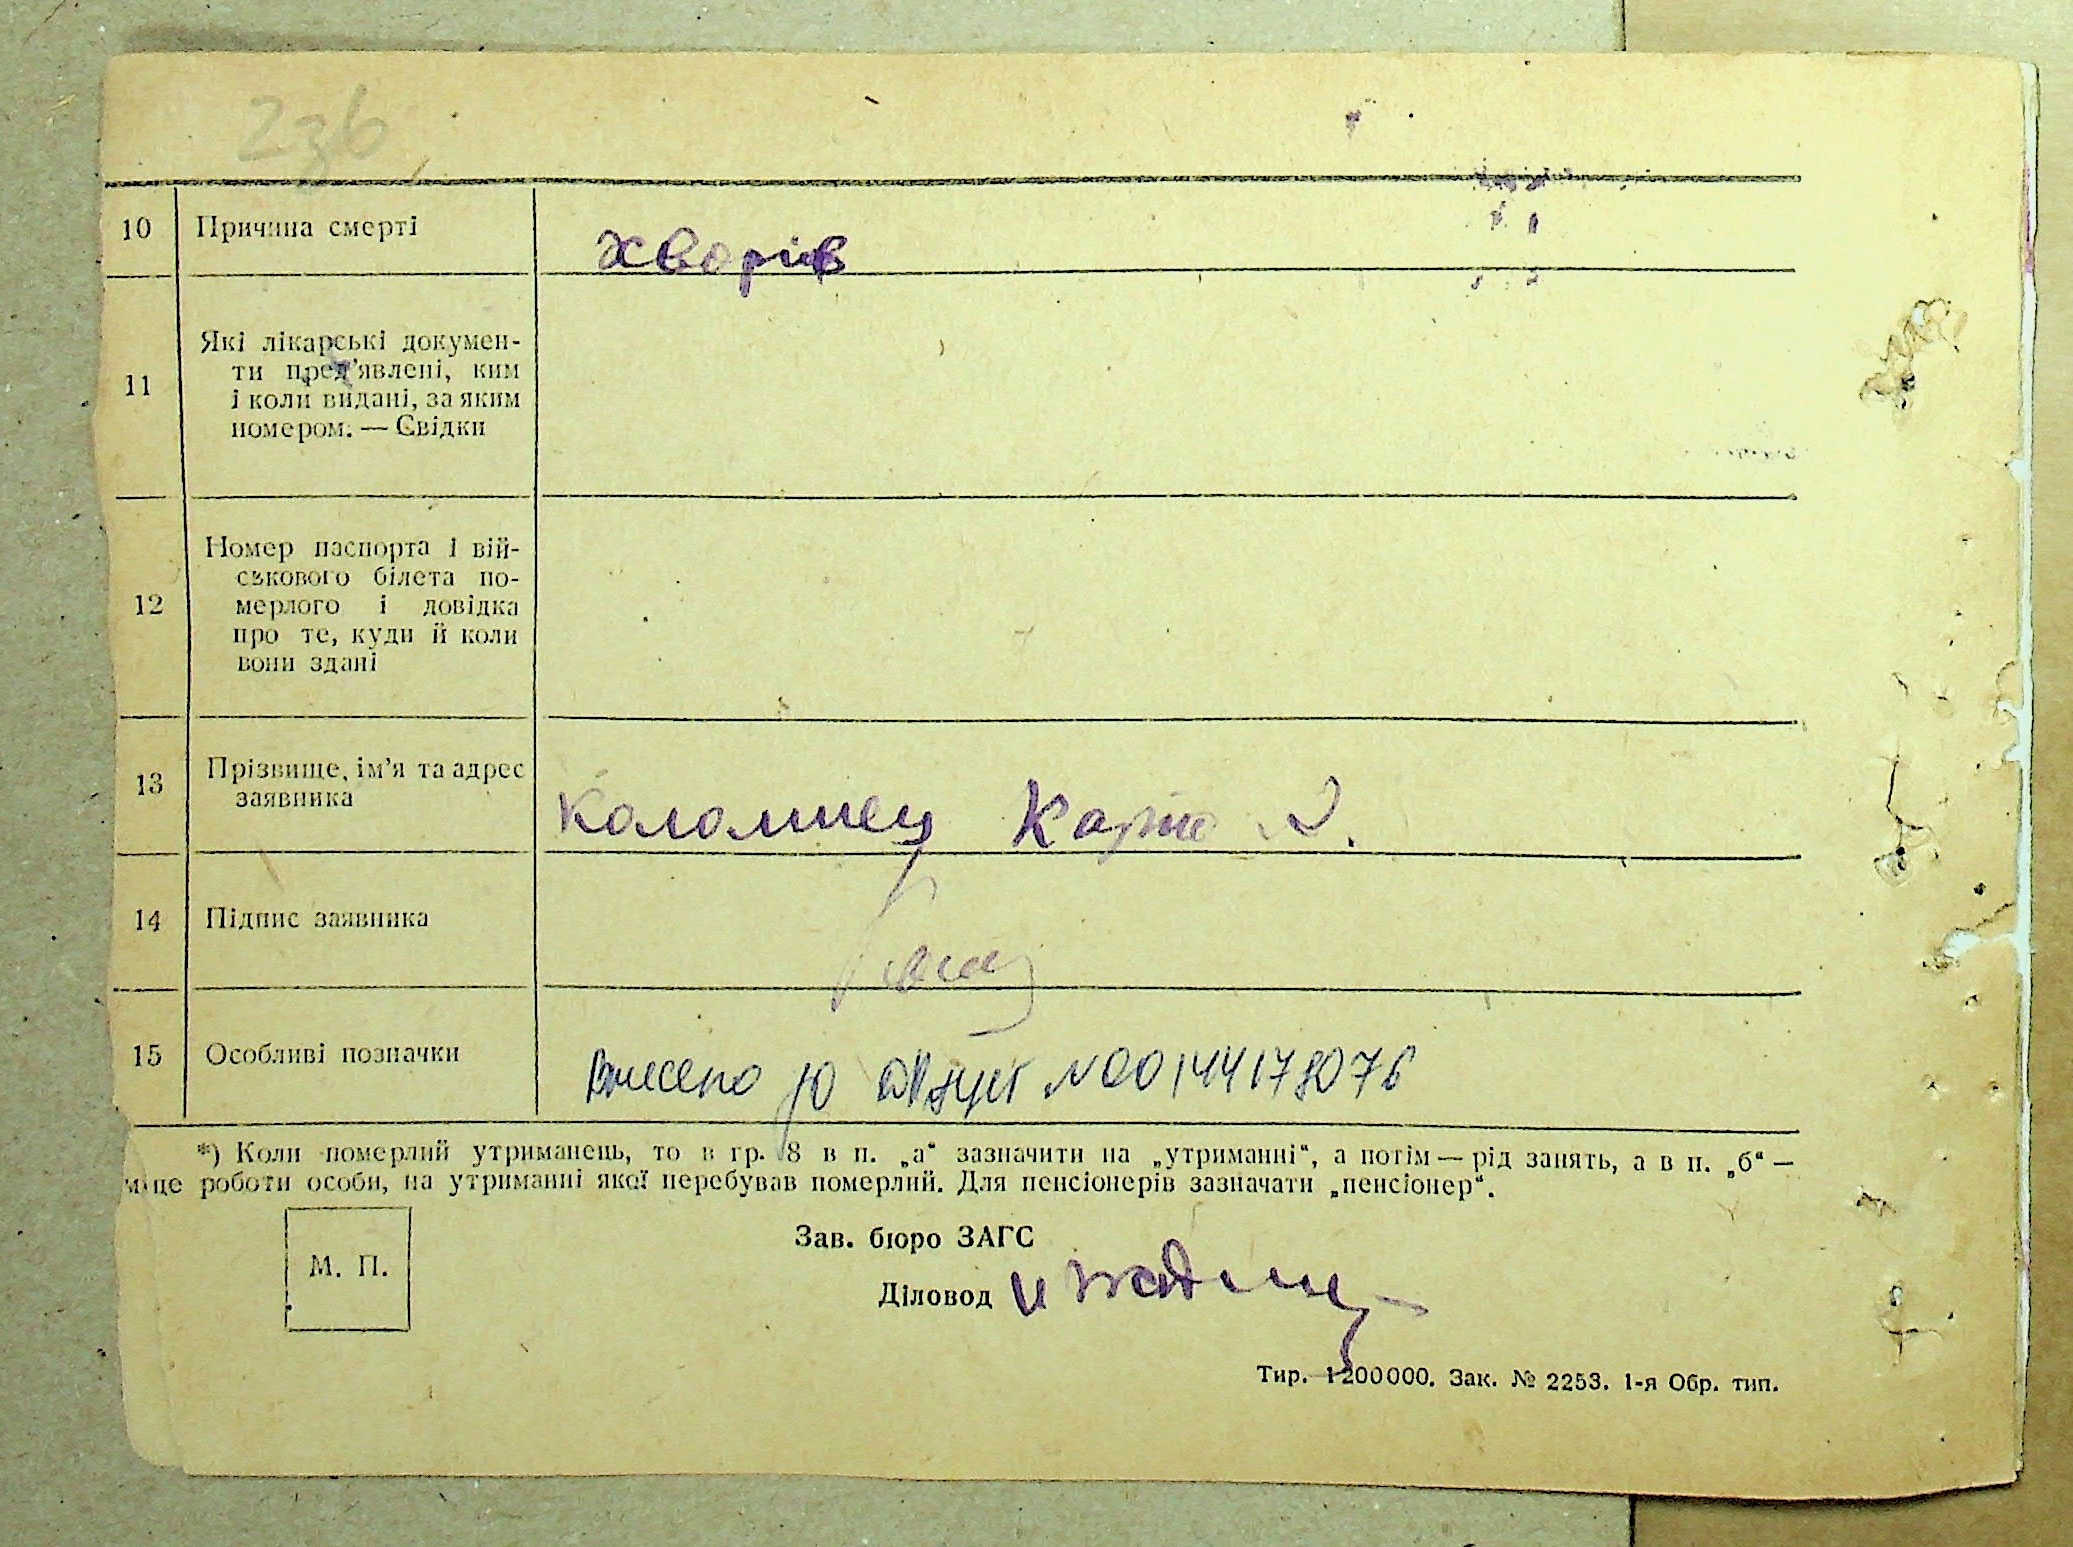 236
10 Причина смерті хворів
11 Які лікарські докумен-
ти пред'явлені, ким
і коли видані, за яким
номером. — Свідки
12 Номер паспорта і вій-
ськового білета по-
мерлого і довідка
про те, куди й коли
вони здані
13 Прізвище, ім'я та адрес
заявника
Коломиец
14 Підпис заявника
15 Особливі позначки Внесено до N00144178076
*) Коли померлий утриманець, то в гр. 8 в п. „а“ зазначити на „утриманні“, а потім — рід занять, а в п. „б“ —
місце роботи особи, на утриманні якої перебував померлий. Для пенсіонерів зазначати „пенсіонер“.
Зав. бюро ЗАГС
М. П.
Діловод
Тир. 1200000. Зак. № 2253. 1-я Обр. тип.